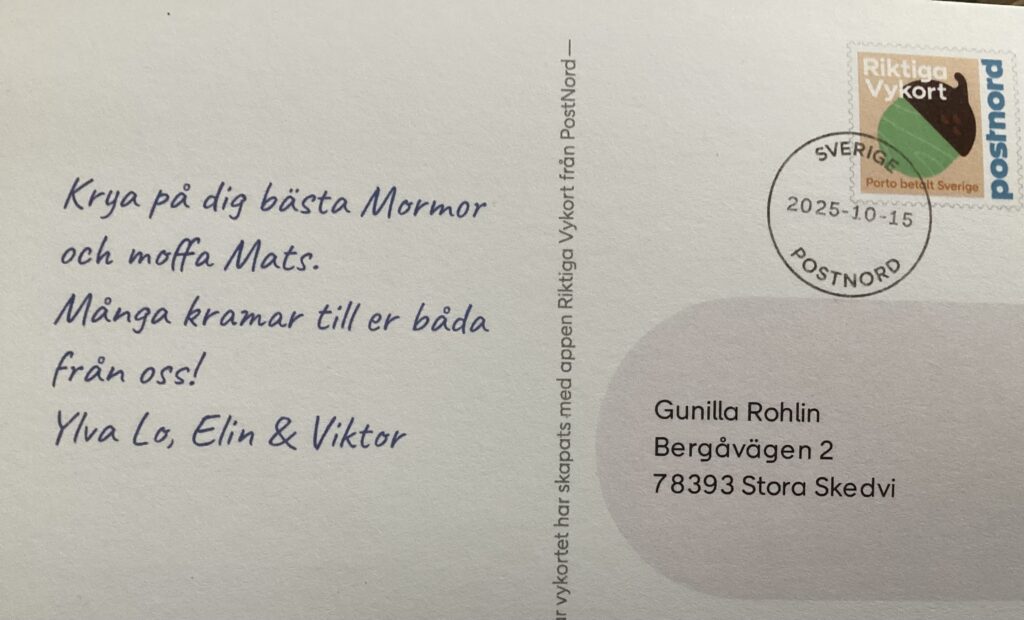 Krya på dig bästa Mormor
och moffa Mats.
Många kramar till er båda
från oss!
Ylva Lo, Elin & Viktor
vykortet har skapats med appen Riktiga Vykort från PostNord
Riktiga
Vykort
postnord
Porto betalt Sverige
SVERIGE
2025-10-15
POSTNORD
Gunilla Rohlin
Bergåvägen 2
78393 Stora Skedvi